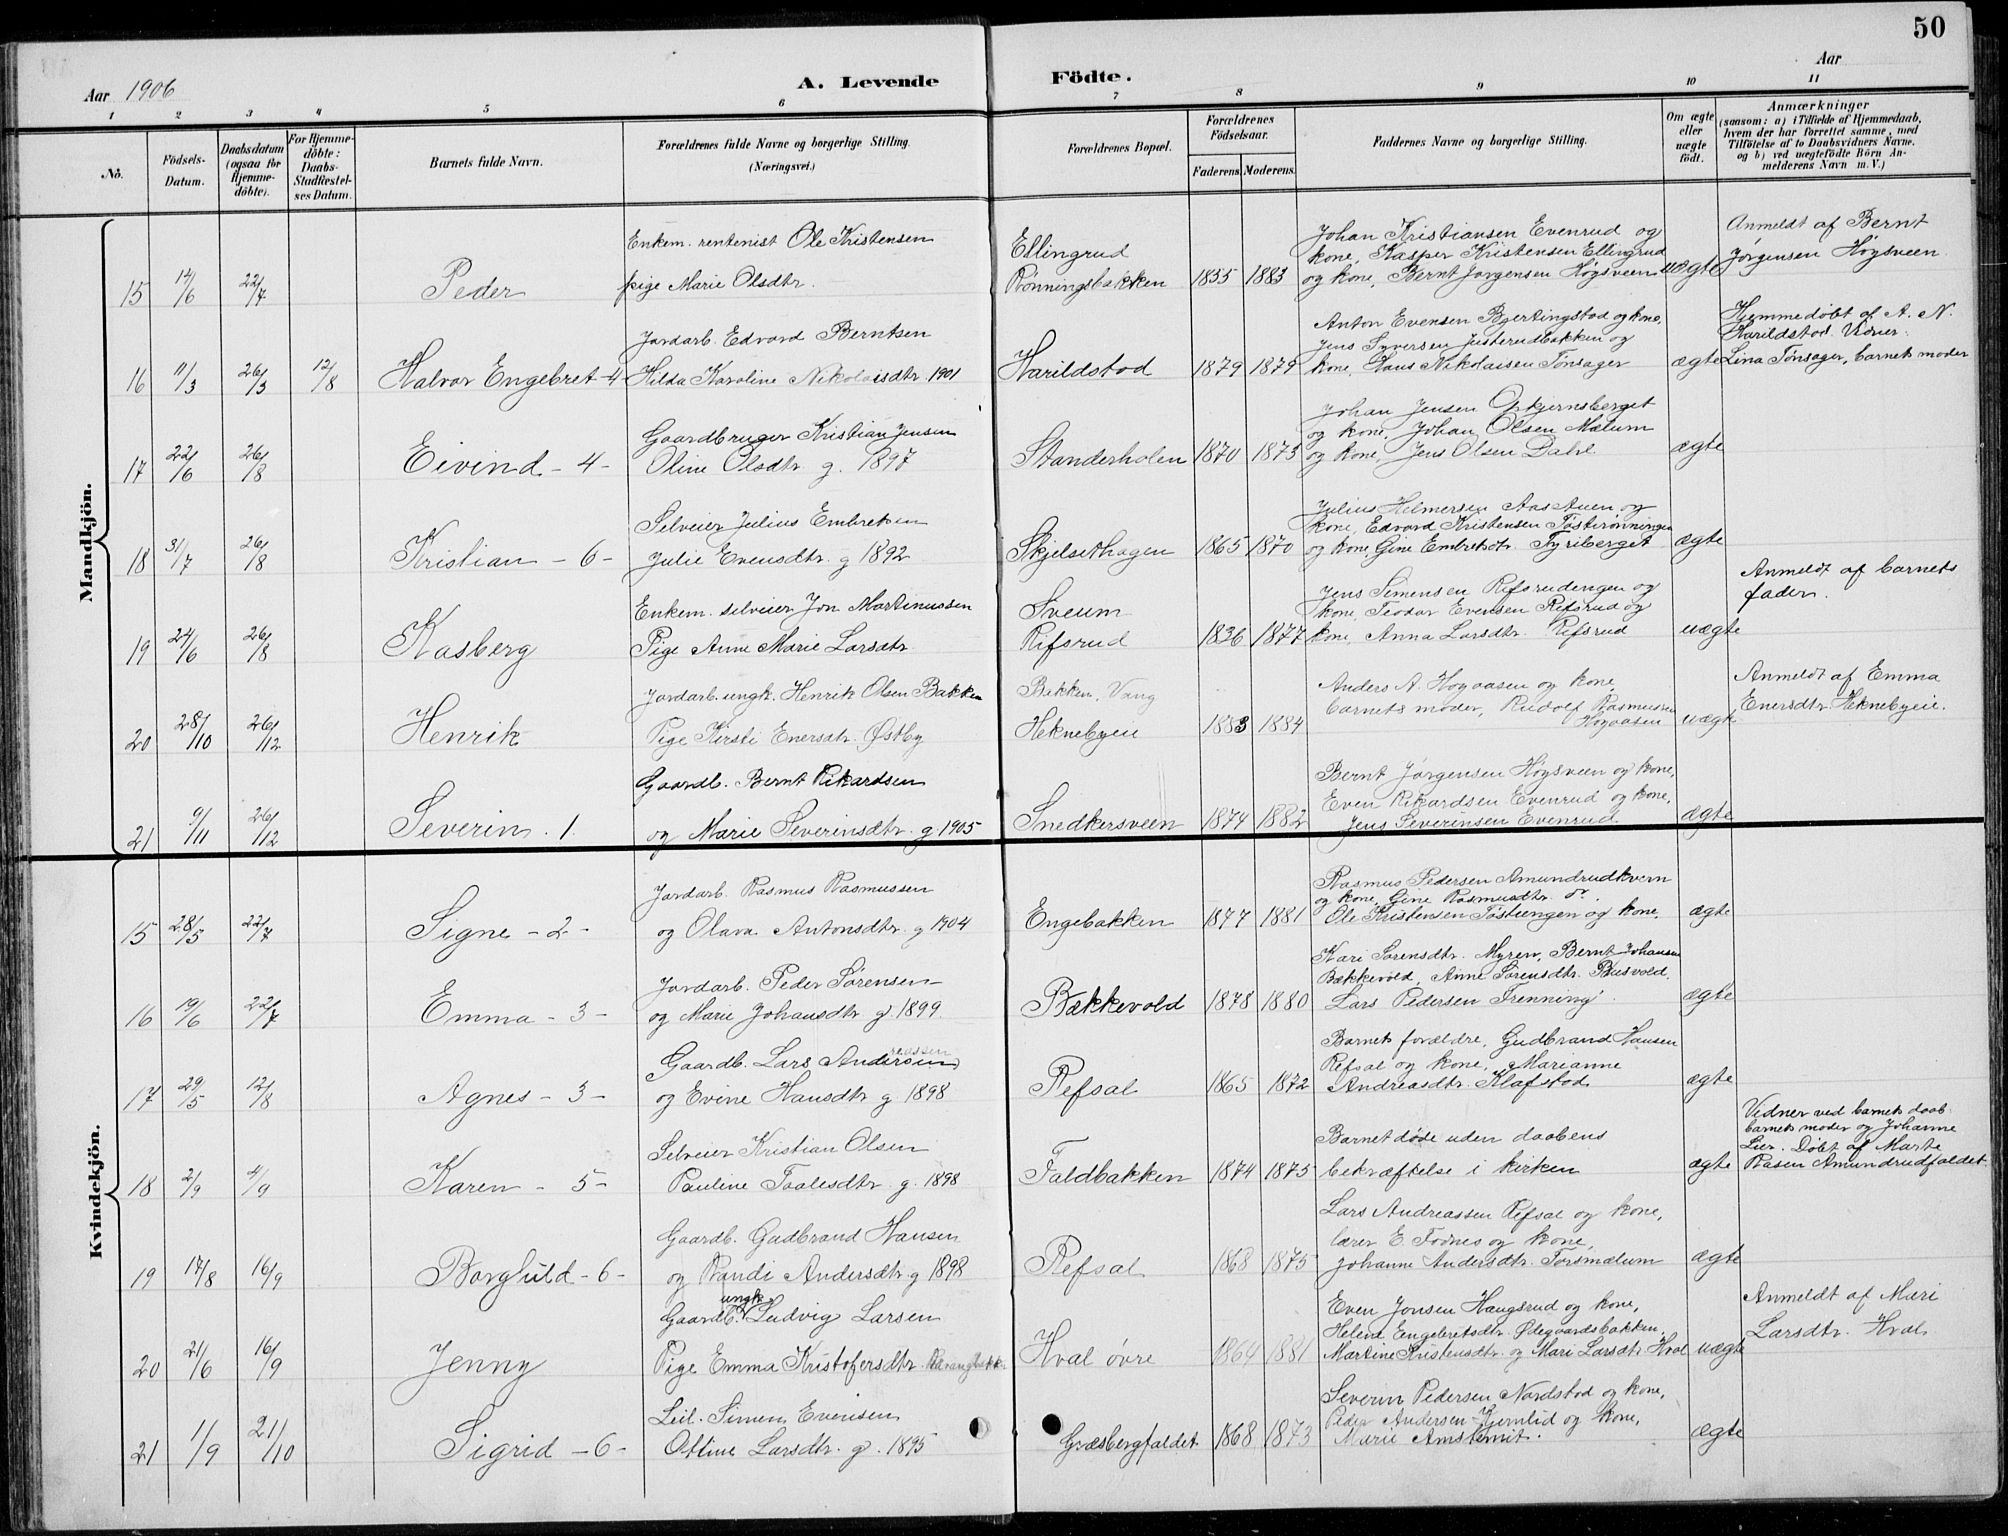 50
Aar 1906
A. Levende Födte.
Aar
1 2 3 4 5 6 7 8 9 10 11
No.
Födsels-Datum.
Daabsdatum (ogsaa för Hjemmedöbte).
For Hjemmedöbte: Daabs-Stadfæstelses Datum.
Barnets fulde Navn.
Forældrenes fulde Navne og borgerlige Stilling.
(Næringsvei.)
Forældrenes Bopæl.
Forældrenes Födselsaar.
Faderens. Moderens.
Faddernes Navne og borgerlige Stilling.
Om ægte eller uægte födt.
Anmærkninger
(saasom: a) i Tilfælde af Hjemmedaab,
hvem der har forrettet samme, med
Tilföielse af to Daabsvidners Navne.
og b) ved uægtefödte Börn An-
melderens Navn m. V.)
Mandkjön.
Enkem. rentenist Ole Kristensen
pige Marie Olsdtr.
15 14/6 22/7 Peder
Ellingrud
Rønningsbakken 1835 1883
Johan Kristiansen Evenrud og
kone, Kasper Kristensen Ellingrud
og kone, Bernt Jørgensen Høgsveen uægte
Anmeldt af Bernt
Jørgensen Høgsveen
Jordarb. Edvard Berntsen
16 11/3 26/3 12/8 Halvor Engebret - 4 Hilda Karoline Nikolaisdtr. 1901
Harildstad 1879 1879
Anton Evensen Bjertingstad og kone,
Jens Syversen Justerudbakken og
kone, Hans Nikolaisen Tønsager ægte
Hjemmedøbt af A. N.
Harildstad. Vidner:
Lina Tønsager, barnets moder
Gaardbruger Kristian Jensen
17 22/6 26/8 Eivind - 4 - Oline Olsdtr g. 1897
Standerholen 1870 1875
Johan Jensen Ørkjernsberget
og kone, Johan Olsen Mælum
og kone, Jens Olsen Dahl ægte
Selveier Julius Embretsen
18 31/7 26/8 Kristian - 6 - Julie Evensdtr. g 1892
Skjelsethagen 1865 1870
Julius Helmersen Aastuen og
kone, Edvard Kristensen Tøsterønningen
og kone, Gine Embretsdtr. Tyriberget ægte
Enkem. selveier Jon Martinussen
19 24/6 26/8 Kasberg Pige Anne Marie Larsdtr.
Sveum
Rifsrud 1836 1877
Jens Simensen Rifsrudengen og
kone, Teodor Evensen Rifsrud og
kone, Anna Larsdtr. Rifsrud uægte
Anmeldt af barnets
fader.
Jordarb. ungk. Henrik Olsen Bakken
20 28/10 26/12 Henrik Pige Kirsti Enersdtr. Østby
Bakken, Vang
Heknebyen 1883 1884
Anders A. Høgaasen og kone,
barnets moder, Rudolf Rasmussen
Høgaasen uægte
Anmeldt af Emma
Enersdtr. Heknebyeie.
Gaardb. Bernt Rikardsen
21 9/11 26/12 Severin. 1. og Marie Severinsdtr. g 1905
Snedkersveen 1874 1882
Bernt Jørgensen Høgsveen og kone,
Even Rikardsen Evenrud og kone,
Jens Severinsen Evenrud. ægte
Kvindekjön.
Jordarb. Rasmus Rasmussen
15 28/5 22/7 Signe - 2 - og Olava Antonsdtr. g 1904
Engebakken 1877 1881
Rasmus Pedersen Amundrudkvern
og kone, Gine Rasmusdtr.
Ole Kristensen Tøstiengen og kone. ægte
Jordarb. Peder Sørensen
16 19/6 22/7 Emma - 3 - og Marie Johansdtr g 1899.
Bækkevold 1878 1880
Kari Sørensdtr. Myren, Bernt Johansen
Bækkevold, Anne Sørensdtr. Busvold.
Lars Pedersen Frenning. ægte
Gaardb. Lars Andersen
17 29/5 12/8 Agnes - 3 - og Evine Hansdtr g. 1898
Refsal 1865 1872
Barnets forældre, Gudbrand Hansen
Refsal og kone, Marianne
Andreasdtr. Klafstad ægte
Selveier Kristian Olsen
18 2/9 4/9 Karen - 5 - Pauline Taalesdtr. g. 1898
Faldbakken 1874 1875
Barnet døde uden daabens
bekræftelse i kirken ægte
Vidner ved barnets daab
barnets moder og Johanne
Lier. Døbt af Marte
Rasen Amundrudfaldet.
Gaardb. Gudbrand Hansen
19 17/8 16/9 Borghild - 6 - og Randi Andersdtr. g 1898
Refsal 1868 1875
Lars Andreassen Refsal og kone,
lærer E. Fodnes og kone,
Johanne Andersdtr. Forsmælum ægte
ungk.
Gaardb. Ludvig Larsen
20 21/6 16/9 Jenny Pige Emma Kristofersdtr.
Hval øvre 1864 1881
Even Jonsen Haugsrud og kone,
Helene Engebretsdtr. Ødegaardsbakken,
Martine Kristensdtr. og Mari Larsdtr Hval uægte
Anmeldt af Mari
Larsdtr. Hval
Leil. Simen Evensen
21 1/9 21/10 Sigrid - 6 - Ottine Larsdtr. g. 1895
Græsbergfaldet 1868 1873
Severin Pedersen Nordstad og kone,
Peder Andersen Kjernlid og kone,
Marie ægte